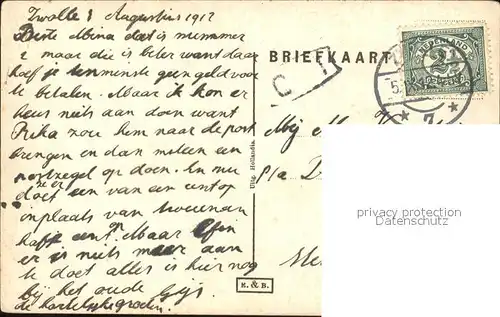 Zwolle 1 Augustus 1912
Beste Mina dat is nummer
2 maar die is beter want daar
hoef je tenminste geen geld voor
te betalen. Maar ik kon er
heus niets aan doen want
Rika zou hem naar de post
brengen en dan meteen een
postzegel op doen. En nu
doet ze er een van een cent op
inplaats van twee en een
half cent. Maar Efin
er is niets meer aan
te doet alles is hier nog
bij het oude Gijs.
de hartelijke groeten.
BRIEFKAART
NEDERLAND
2½
Mej M
p/a D
Uitg. Hollandia.
K. & B.
privacy protection
Datenschutz